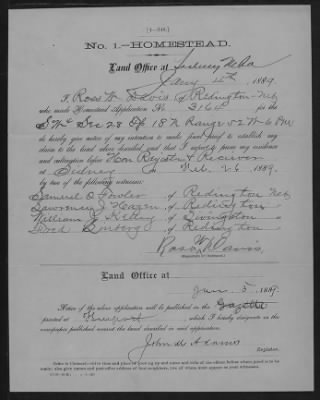 [4—348.]
No. 1.—HOMESTEAD.
Land Office at Sidney Neb
1889.
I, Ross W. Davis, of Redington Neb
who made Homestead Application No. for the
Sec 28 Tp 18 N Range 52 W 6 PM
do hereby give notice of my intention to make final proof to establish my
claim to the land above described, and that I expect to prove my residence
and cultivation before Hon. Register & Receiver
at Sidney on Feb. 26, 1889,
by two of the following witnesses:
Samuel O Fowler, of Redington Neb
Lawrence J Hagen, of Redington "
William J Kelley, of Livingston "
of Redington "
Ross W Davis,
(Signature of Claimant.)
Land Office at
Jan 5, 1889.
Notice of the above application will be published in the Gazette
printed at , which I hereby designate as the
newspaper published nearest the land described in said application.
John M Adams
Register.